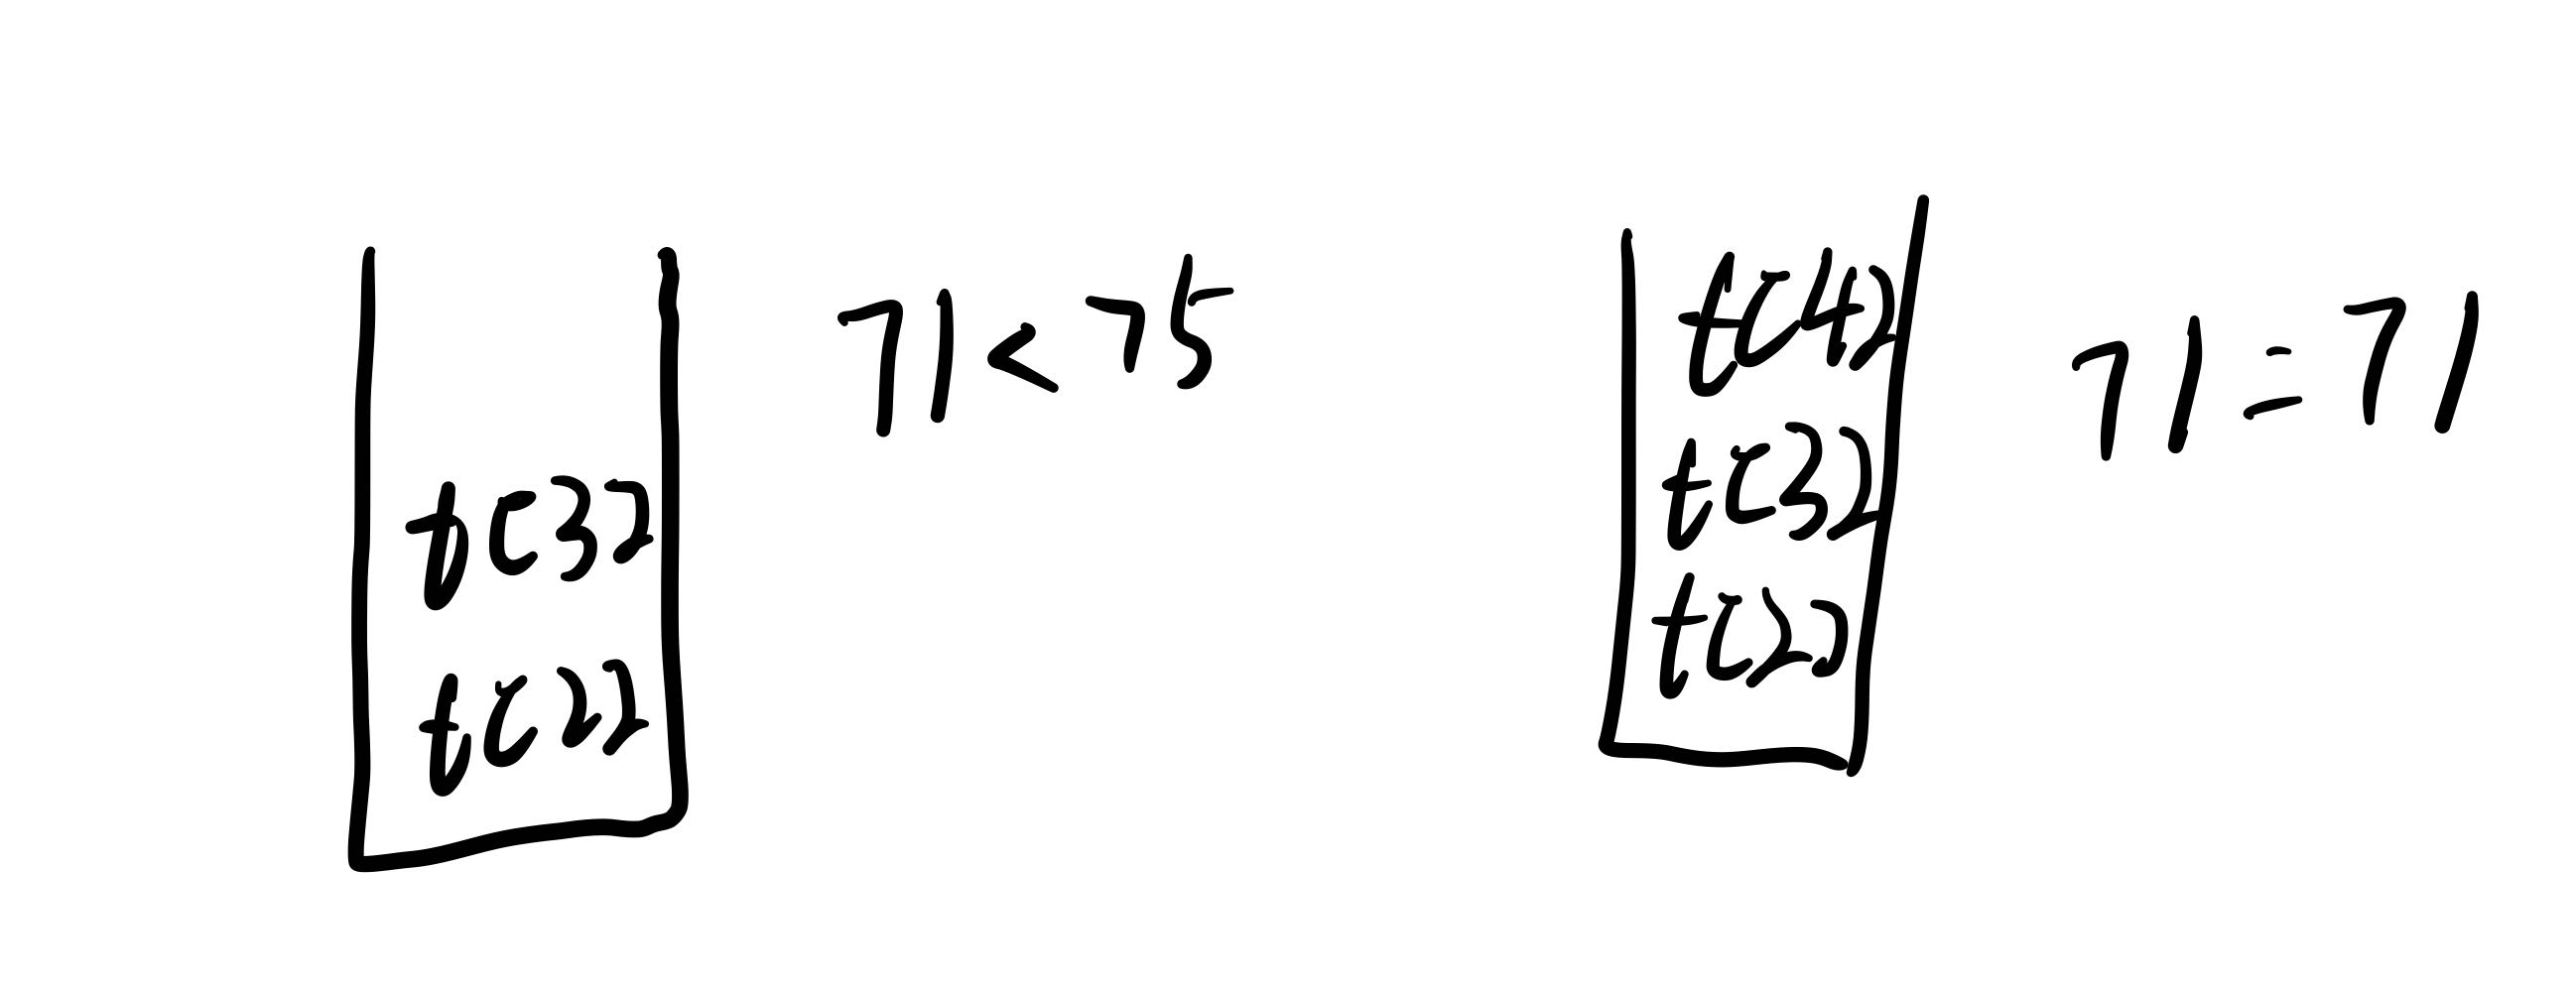 t[3]
t[2]
71<75
t[4]
t[3]
t[2]
71=71